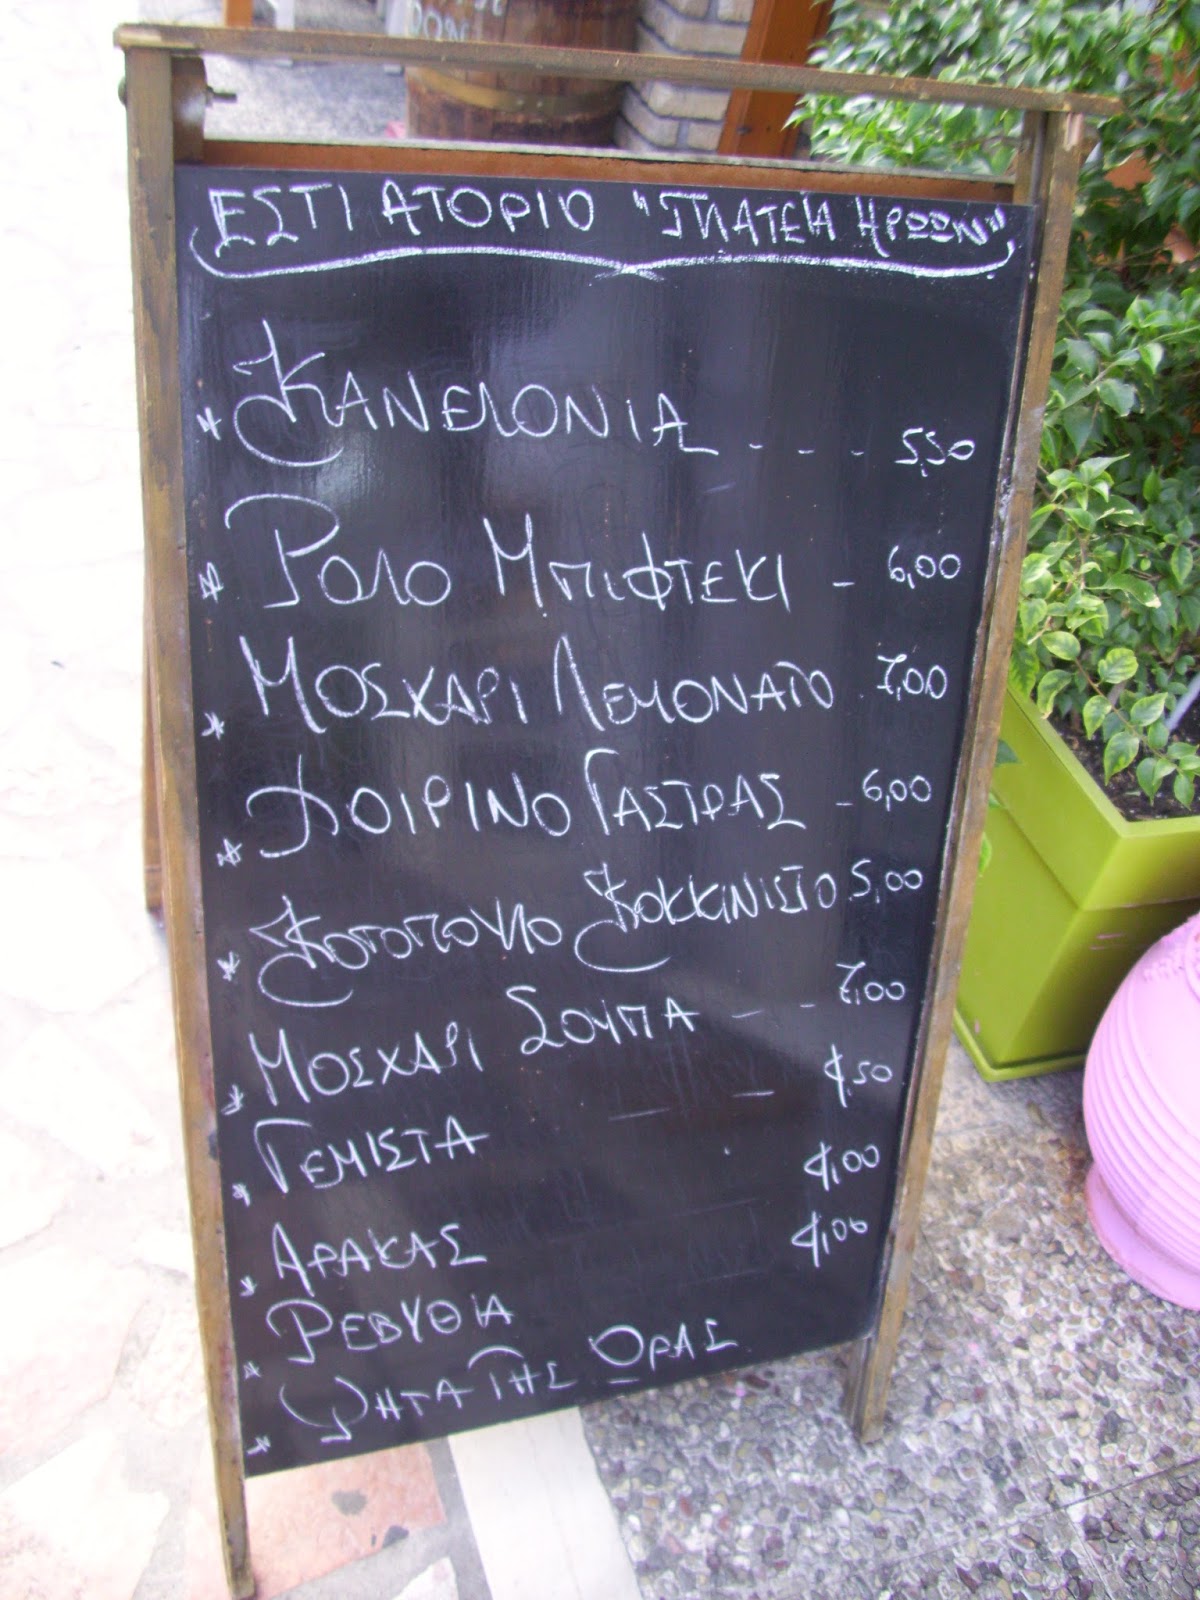 ΕΣΤΙΑΤΟΡΙΟ "ΠΛΑΤΕΙΑ ΗΡΩΩΝ"
* ΚΑΝΕΛΟΝΙΑ - - - - 5,50
* ΡΟΛΟ ΜΠΙΦΤΕΚΙ - 6,00
* ΜΟΣΧΑΡΙ ΛΕΜΟΝΑΤΟ 7,00
* ΧΟΙΡΙΝΟ ΓΑΣΤΡΑΣ - 6,00
* ΚΟΤΟΠΟΥΛΟ ΚΟΚΚΙΝΙΣΤΟ 5,00
* ΜΟΣΧΑΡΙ ΣΟΥΠΑ - - 7,00
* ΓΕΜΙΣΤΑ - - 4,50
* ΑΡΑΚΑΣ 4,00
* ΡΕΒΥΘΙΑ 4,00
* ΨΗΤΑ ΤΗΣ ΩΡΑΣ